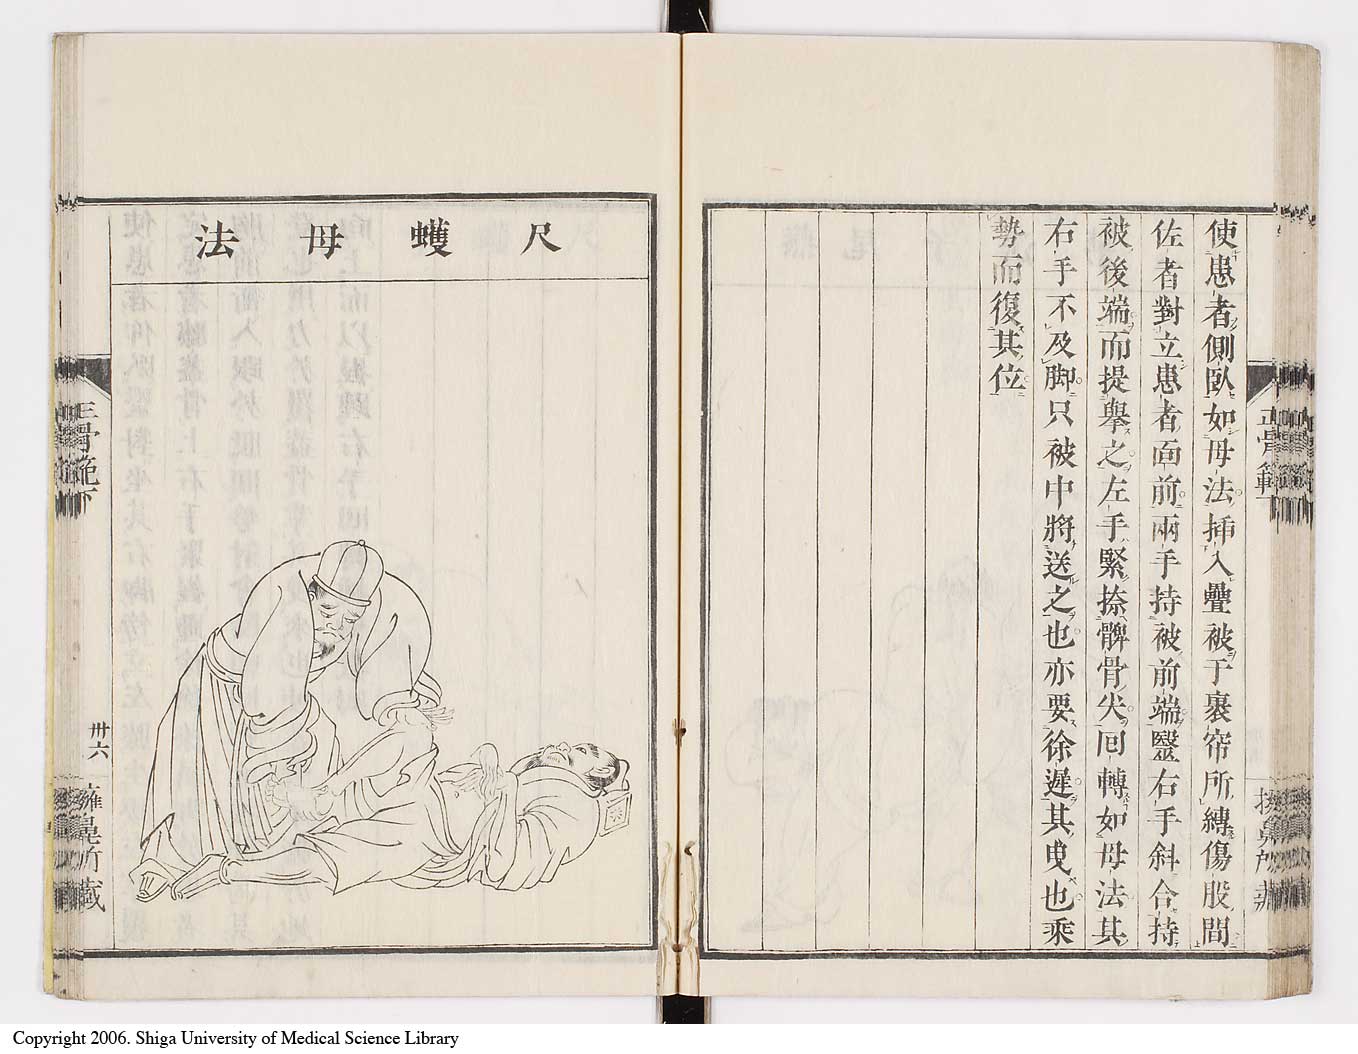 使患者側臥如母法插入疊被于裹帘所縛傷股間
佐者對立患者面前兩手持被前端毉右手斜合持
被後端而提舉之左手緊捺髀骨尖回轉如母法其
右手不及脚只被中將送之也亦要徐遲其曳也乘
勢而復其位
正骨範
尺蠖母法
正骨範下
卅六
所藏
Copyright 2006. Shiga University of Medical Science Library